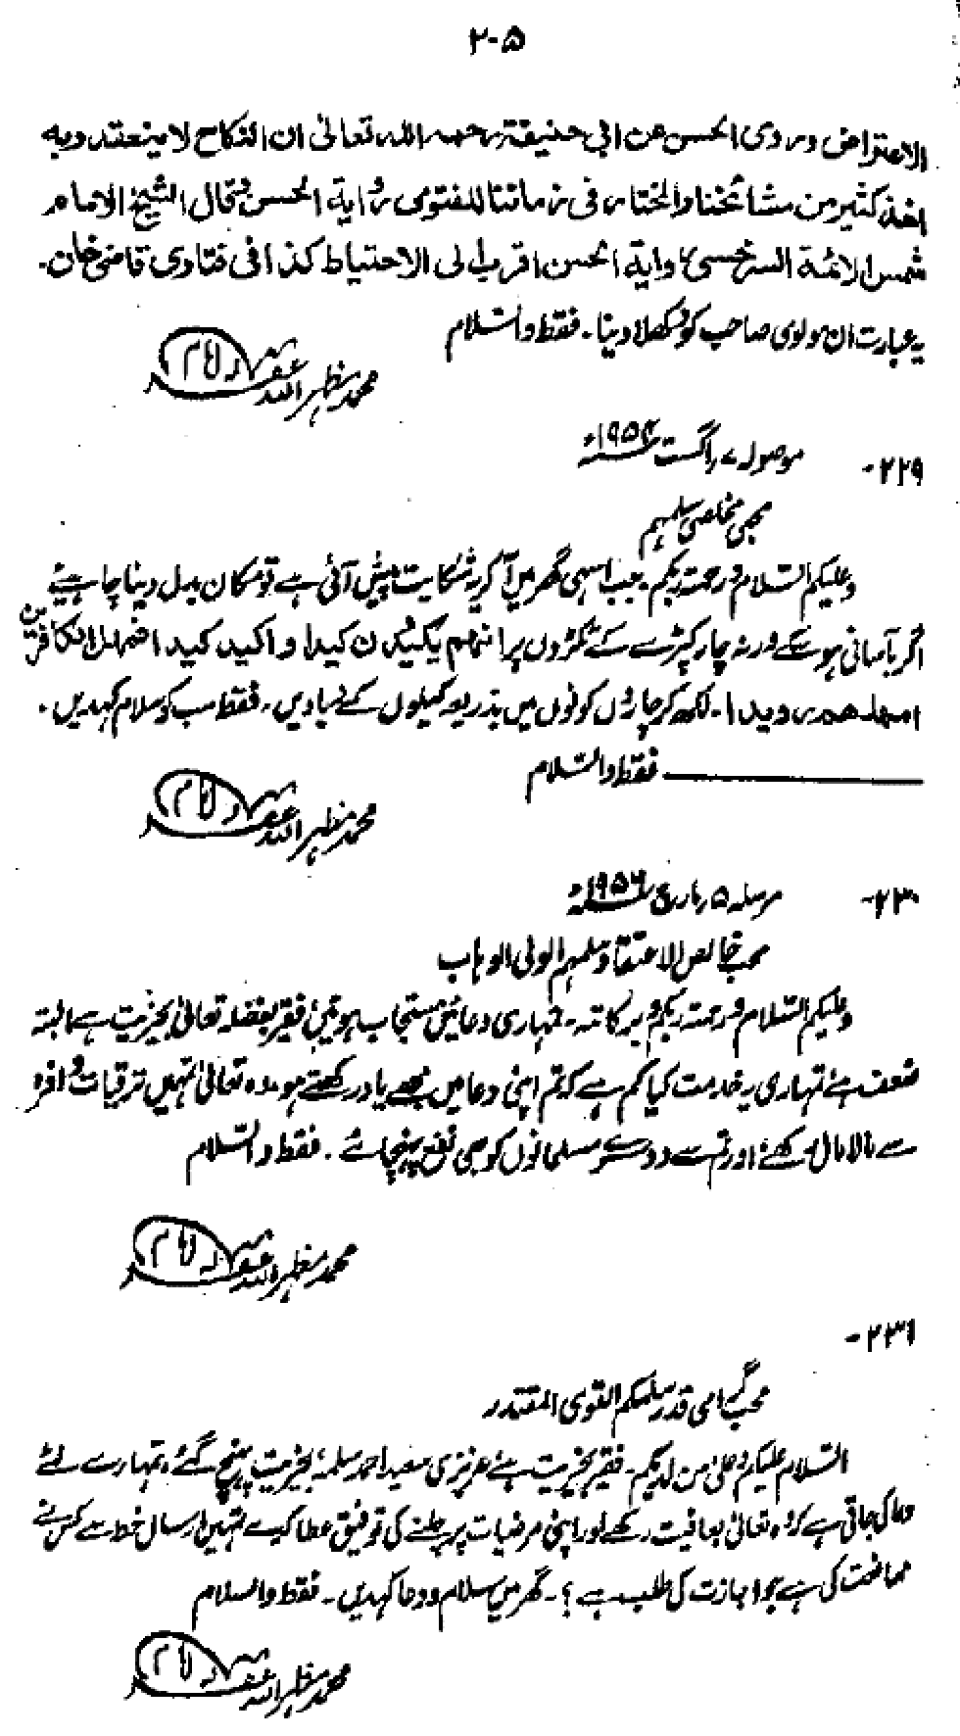 ۲۰۵
الاعتراض وروی الحسن عن ابی حنیفة رحمه الله تعالیٰ ان النکاح لا ینعقد وبه
اخذ کثیر من مشائخنا والمختار فی زماننا للفتویٰ روایة الحسن وقال الشیخ الامام
شمس الائمة السرخسی روایة الحسن اقرب الی الاحتیاط کذا فی فتاوی قاضی خان۔
یہ عبارت ان مولوی صاحب کو دکھلا دینا۔ فقط والسّلام
محمد مظہر اللہ غفرلہ امام
۲۲۹۔
موصولہ ۷ر اگست ۱۹۵۴ء
محبی مخلصی سلمہم
وعلیکم السّلام ورحمتہ ربکم۔ جب اسہی گھر میں آکر یہ شکایت پیش آئی ہے تو مکان بدل دینا چاہیئے
اگر بآسانی ہوسکے ورنہ چار کپڑے کے ٹکڑوں پر انھم یکیدون کیدا واکید کیدا فمھل الکافرین
امھلھم رویدا۔ لکھ کر چاروں کونوں میں بذریعہ کیلوں کے لگا دیں۔ فقط سب کو سلام کہدیں۔
فقط والسّلام
محمد مظہر اللہ غفرلہ امام
۲۳۰۔
مرسلہ ۵ر مارچ ۱۹۵۶ء
محب خالص الاعتقاد سلمہم الولی الوہاب
وعلیکم السّلام ورحمتہ ربکم وبرکاتہ۔ تمہاری دعائیں مستجاب ہوئیں فقیر بفضلہ تعالیٰ بخیریت ہے البتہ
ضعف ہے تمہاری یہ خدمت کیا کم ہے کہ تم اپنی دعا میں مجھے یاد رکھتے ہو وہ تعالیٰ تمہیں ترقیات وافرہ
سے مالامال رکھے اور تم سے دوسرے مسلمانوں کو بھی نفع پہنچائے۔ فقط والسّلام
محمد مظہر اللہ غفرلہ امام
۲۳۱۔
محب گرامی قدر سلمکم القوی المقتدر
السّلام علیکم وعلیٰ من لدیکم۔ فقیر بخیریت ہے عزیزی سعید احمد سلمہٗ بخیریت پہنچ گئے، تمہارے لئے
دعا کی جاتی ہے کہ وہ تعالیٰ بعافیت رکھے اور اپنی مرضیات پر چلنے کی توفیق عطا کرے تمہیں ارسال خط سے کس نے
ممانعت کی ہے جو اجازت کی طلب ہے؟۔ گھر میں سلام ودعا کہدیں۔ فقط والسلام
محمد مظہر اللہ غفرلہ امام